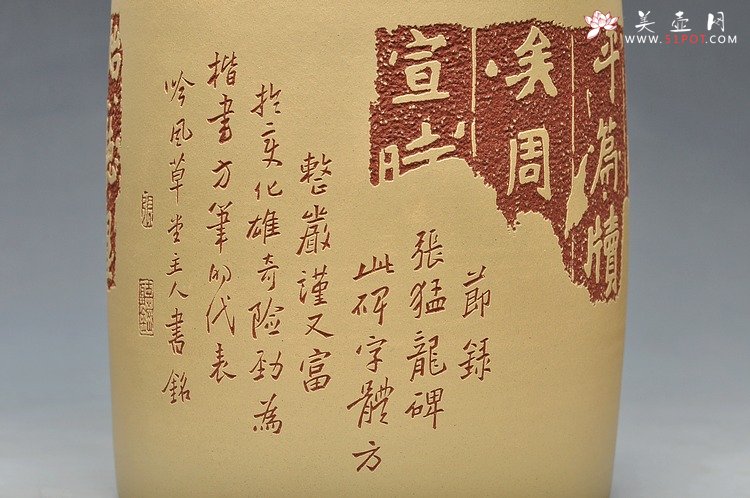 美壶网
WWW.51POT.COM
平篇牘
矣周
宣時
節錄
張猛龍碑
此碑字體方
整嚴謹又富
於變化雄奇險勁為
楷書方筆的代表
吟風草堂主人書銘